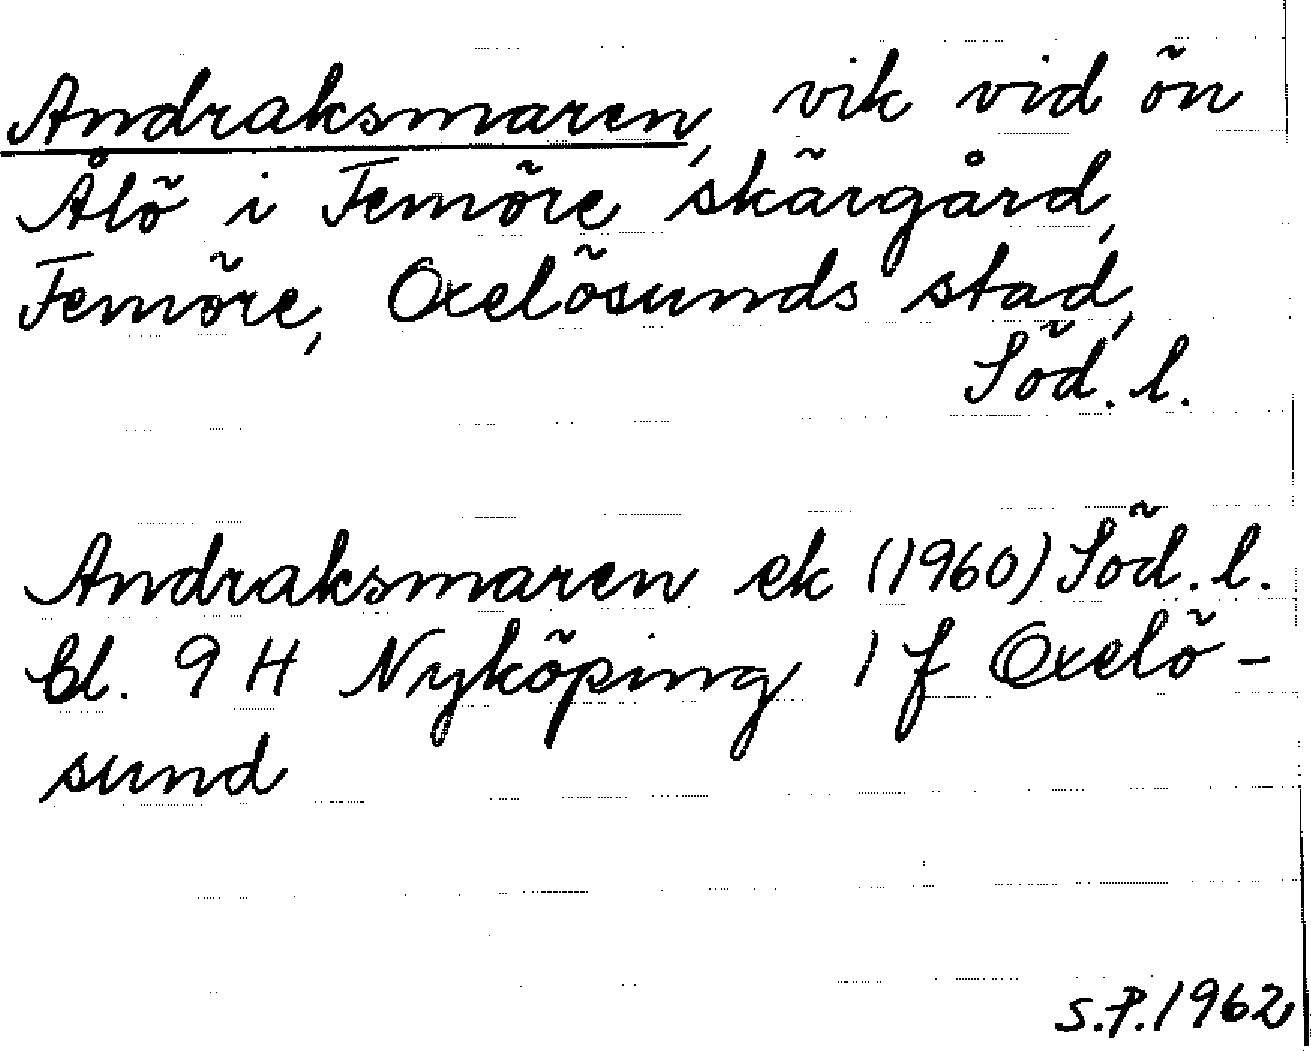 Andraksmaren, vik vid ön
Ålö i Femöre skärgård,
Femöre, Oxelösunds stad,
Söd. l.
Andraksmaren ek (1960) Söd. l.
bl. 9 H Nyköping 1 f Oxelö-
sund
S.P. 1962